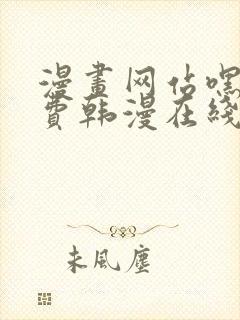 漫畫网站嘿
費韩漫在线
未風塵